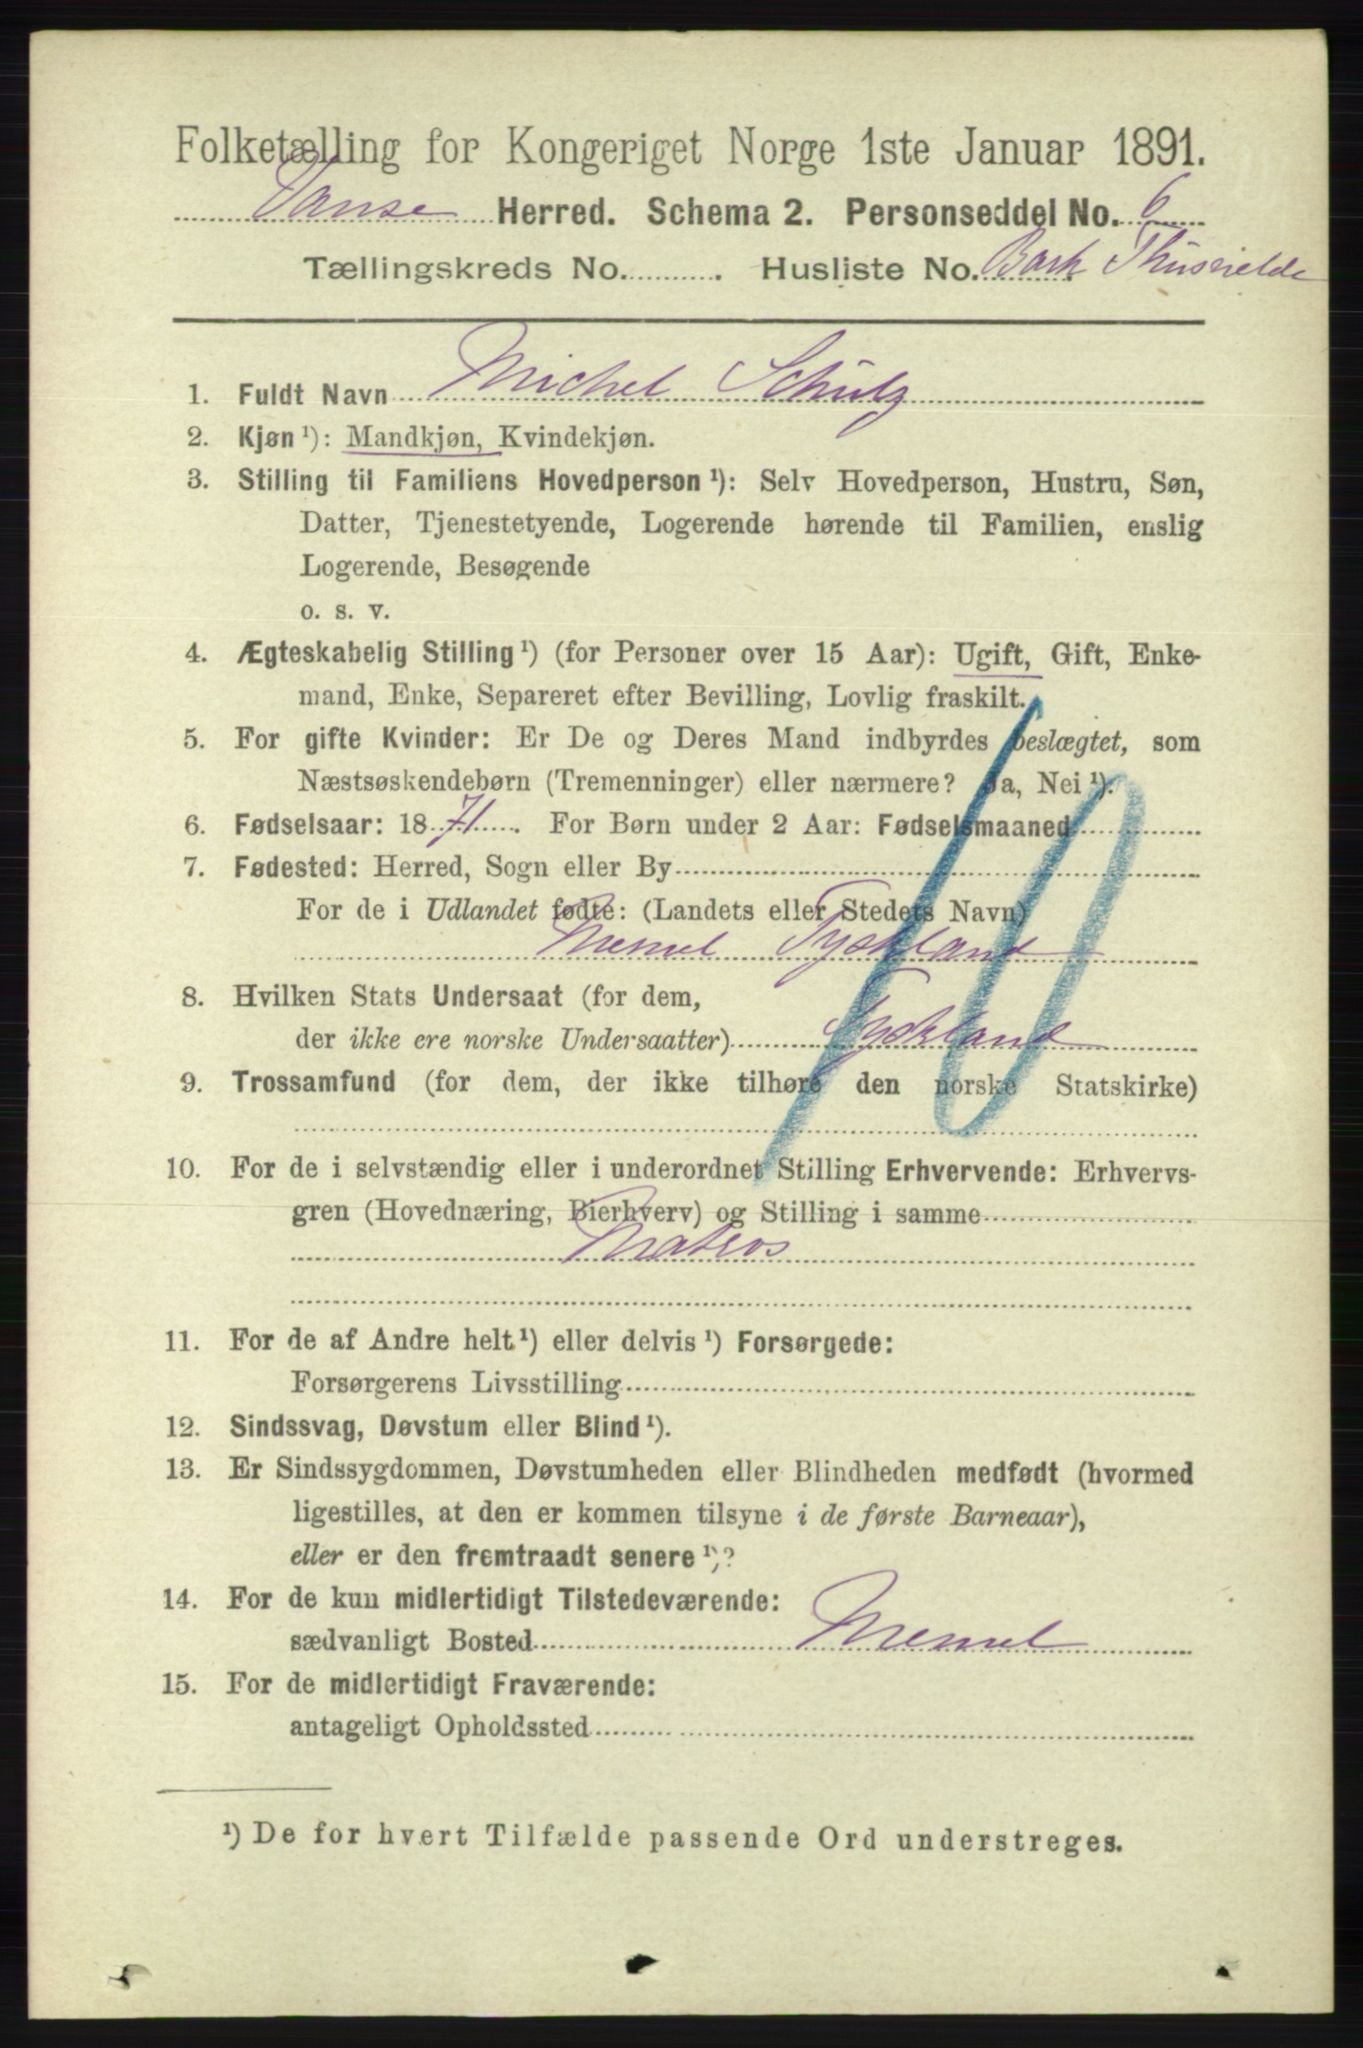 Folketælling for Kongeriget Norge 1ste Januar 1891.
Vanse Herred. Schema 2. Personseddel No. 6
Tællingskreds No. . Husliste No. Bark Thusnelda
1. Fuldt Navn Michel Schulz
2. Kjøn ¹): Mandkjøn, Kvindekjøn.
3. Stilling til Familiens Hovedperson ¹): Selv Hovedperson, Hustru, Søn,
Datter, Tjenestetyende, Logerende hørende til Familien, enslig
Logerende, Besøgende
o. s. v.
4. Ægteskabelig Stilling ¹) (for Personer over 15 Aar): Ugift, Gift, Enke-
mand, Enke, Separeret efter Bevilling, Lovlig fraskilt.
5. For gifte Kvinder: Er De og Deres Mand indbyrdes beslægtet, som
Næstsøskendebørn (Tremenninger) eller nærmere? Ja, Nei ¹).
6. Fødselsaar: 1871. For Børn under 2 Aar: Fødselsmaaned
7. Fødested: Herred, Sogn eller By
For de i Udlandet fødte: (Landets eller Stedets Navn)
Memel Tyskland
8. Hvilken Stats Undersaat (for dem,
der ikke ere norske Undersaatter) Tyskland
9. Trossamfund (for dem, der ikke tilhøre den norske Statskirke)
10. For de i selvstændig eller i underordnet Stilling Erhvervende: Erhvervs-
gren (Hovednæring, Bierhverv) og Stilling i samme
Matros
11. For de af Andre helt ¹) eller delvis ¹) Forsørgede:
Forsørgerens Livsstilling
12. Sindssvag, Døvstum eller Blind ¹).
13. Er Sindssygdommen, Døvstumheden eller Blindheden medfødt (hvormed
ligestilles, at den er kommen tilsyne i de første Barneaar),
eller er den fremtraadt senere ¹)?
14. For de kun midlertidigt Tilstedeværende:
sædvanligt Bosted Memel
15. For de midlertidigt Fraværende:
antageligt Opholdssted
¹) De for hvert Tilfælde passende Ord understreges.